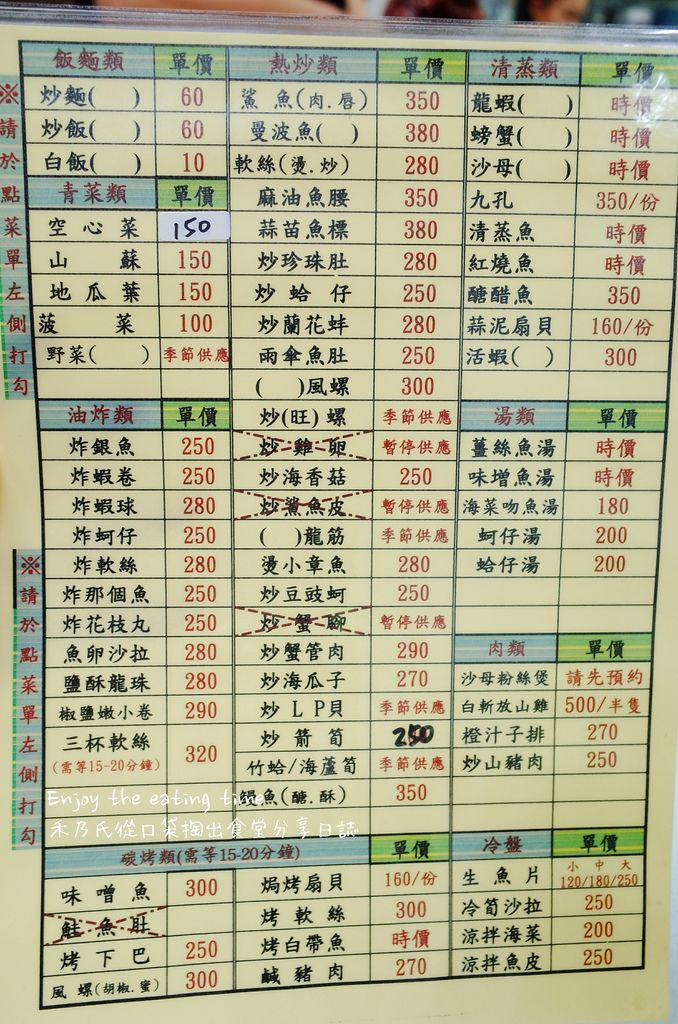 飯麵類 單價
炒麵( ) 60
炒飯( ) 60
白飯( ) 10
青菜類 單價
空心菜 150
山蘇 150
地瓜葉 150
菠菜 100
野菜( ) 季節供應
油炸類 單價
炸銀魚 250
炸蝦卷 250
炸蝦球 280
炸蚵仔 250
炸軟絲 280
炸那個魚 250
炸花枝丸 250
魚卵沙拉 280
鹽酥龍珠 280
椒鹽嫩小卷 290
三杯軟絲 320
(需等15-20分鐘)
熱炒類 單價
鯊魚(肉.唇) 350
曼波魚( ) 380
軟絲(燙.炒) 280
麻油魚腰 350
蒜苗魚標 380
炒珍珠肚 280
炒蛤仔 250
炒蘭花蚌 280
雨傘魚肚 250
( )風螺 300
炒(旺)螺 季節供應
炒雞卵 暫停供應
炒海香菇 250
炒鯊魚皮 暫停供應
( )龍筋 季節供應
燙小章魚 280
炒豆豉蚵 250
炒蟹腳 暫停供應
炒蟹管肉 290
炒海瓜子 270
炒LP貝 季節供應
炒箭筍 250
竹蛤/海蘆筍 季節供應
鰻魚(醣.酥) 350
清蒸類 單價
龍蝦( ) 時價
螃蟹( ) 時價
沙母( ) 時價
九孔 350/份
清蒸魚 時價
紅燒魚 時價
醣醋魚 350
蒜泥扇貝 160/份
活蝦( ) 300
湯類 單價
薑絲魚湯 時價
味增魚湯 時價
海菜吻魚湯 180
蚵仔湯 200
蛤仔湯 200
肉類 單價
沙母粉絲煲 請先預約
白斬放山雞 500/半隻
橙汁子排 270
炒山豬肉 250
碳烤類(需等15-20分鐘) 單價
味噌魚 300
鮭魚肚
烤下巴 250
風螺(胡椒.蜜) 300
焗烤扇貝 160/份
烤軟絲 300
烤白帶魚 時價
鹹豬肉 270
冷盤 單價
生魚片 小中大 120/180/250
冷筍沙拉 250
涼拌海菜 200
涼拌魚皮 250
※請於點菜單左側打勾
※請於點菜單左側打勾
Enjoy the eating time
禾乃氏從口袋掏出食堂分享日誌